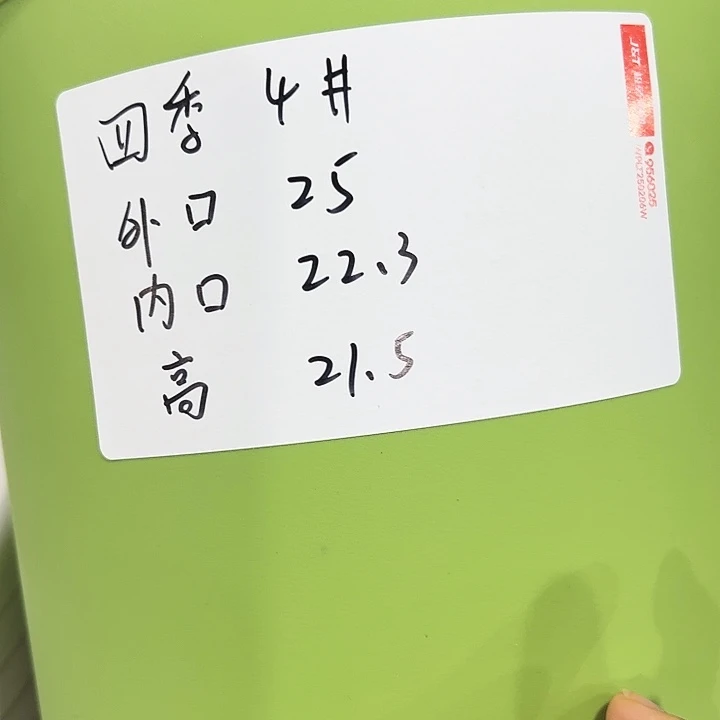 四季 4#
外口 25
内口 22.3
高 21.5
J&T
956025